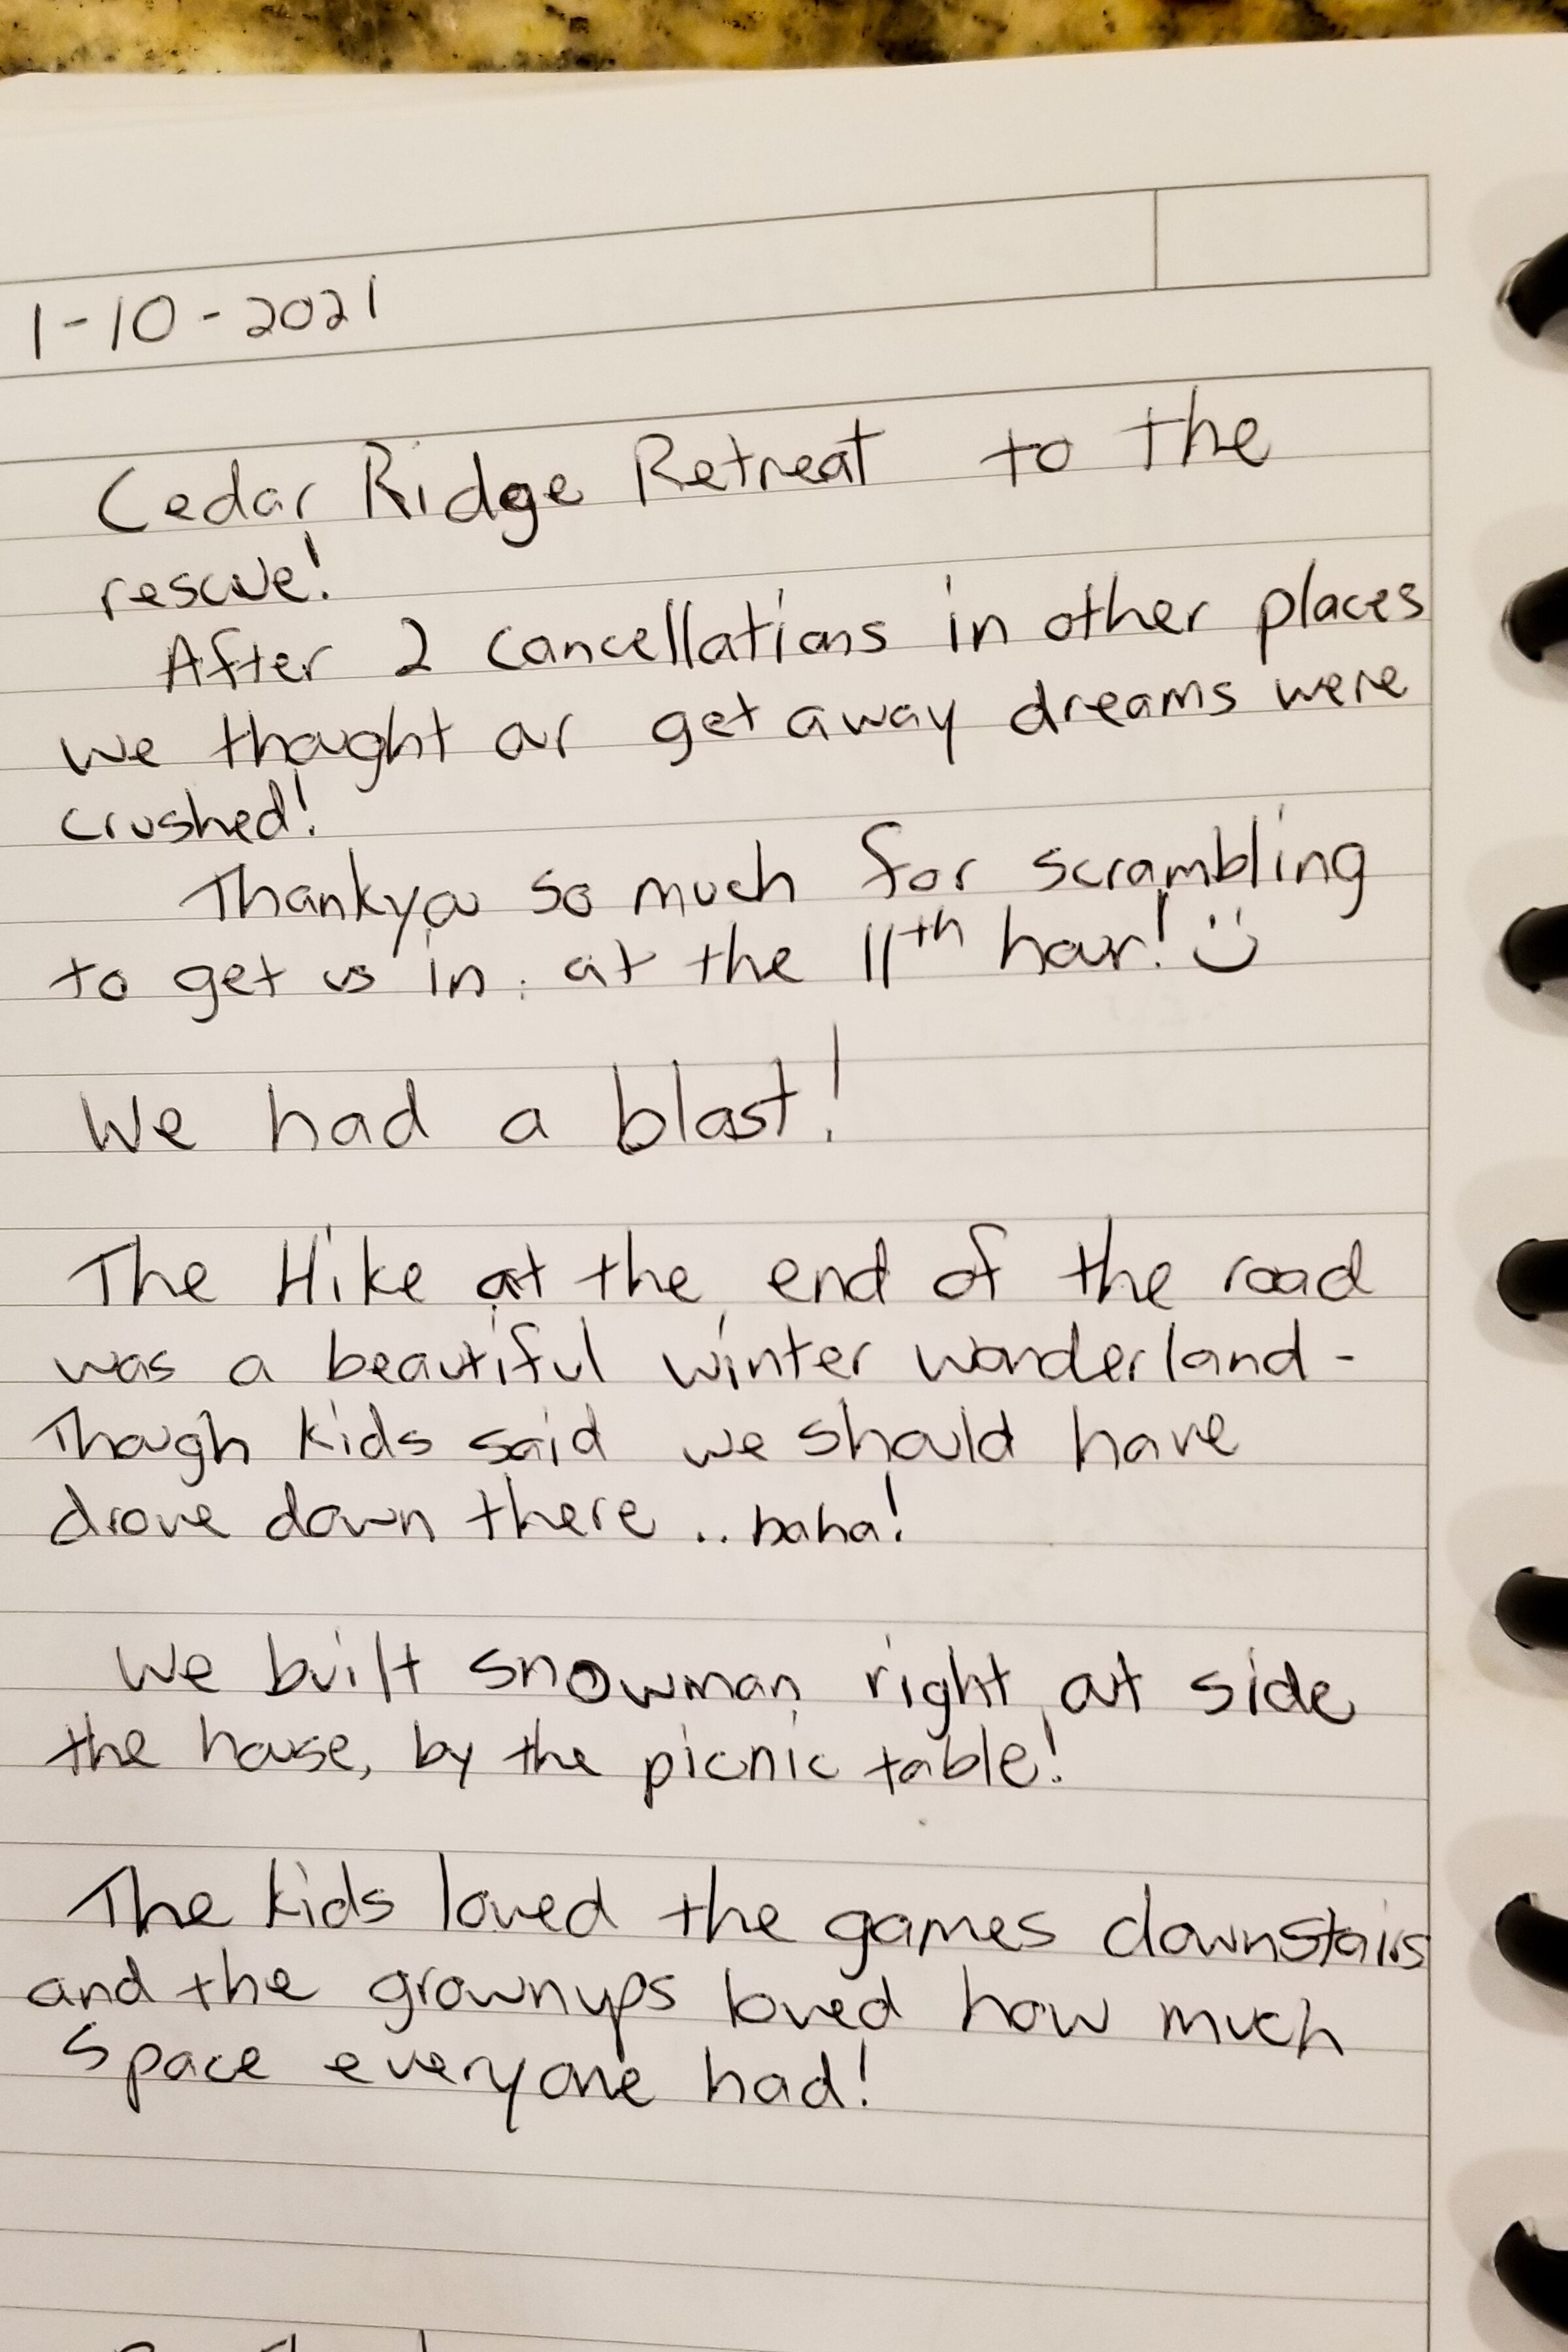 1-10-2021
Cedar Ridge Retreat to the
rescue!
After 2 cancellations in other places
we thought our get away dreams were
crushed!
Thankyou so much for scrambling
to get us in. at the 11th hour! :)
We had a blast!
The Hike at the end of the road
was a beautiful winter wonderland -
Though kids said we should have
drove down there .. haha!
We built snowman right at side
the house, by the picnic table!
The kids loved the games downstairs
and the grownups loved how much
space everyone had!